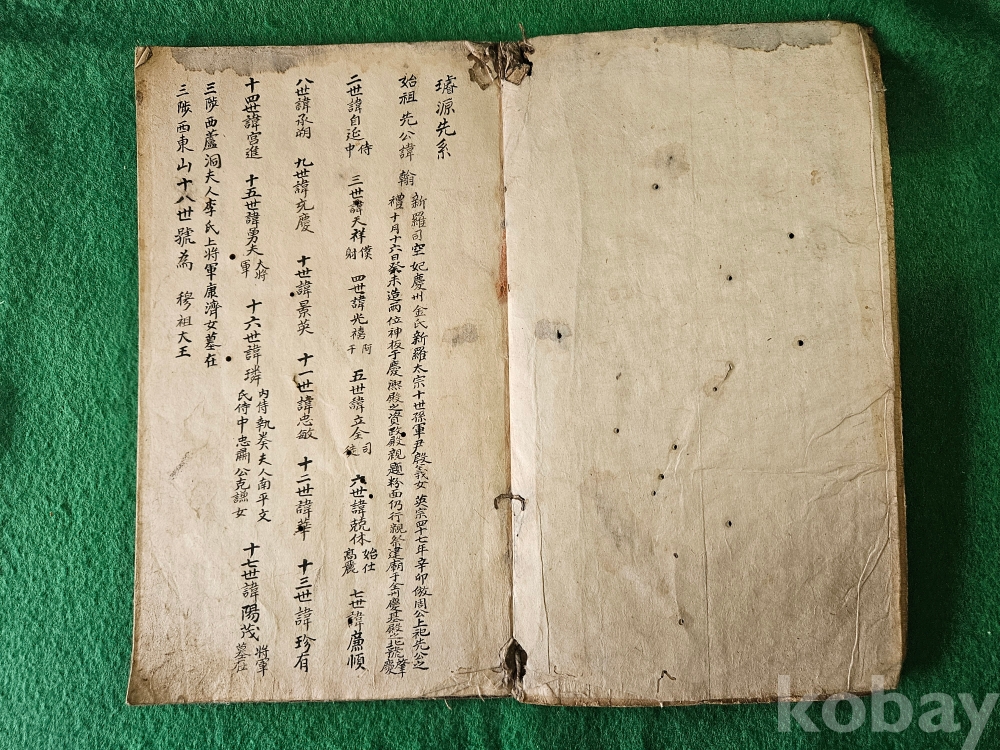 璿源先系
始祖先公諱翰 新羅司空妃慶州金氏新羅太宗十世孫軍尹殷義女 英宗四十七年辛卯倣周公上祀先公之
禮十月十六日癸未造兩位神板于慶熙殿之資政殿親題粉面仍行親祭建廟于全州慶基殿之北號肇慶
二世諱自延 侍中 三世諱天祥 僕財 四世諱光禧 阿干 五世諱立全 司徒 六世諱兢休 始仕高麗 七世諱廉順
八世諱承朔 九世諱充慶 十世諱景英 十一世諱忠敏 十二世諱華 十三世諱珍有
十四世諱宮進 十五世諱勇夫 大將軍 十六世諱璘 內侍執奏夫人南平文氏侍中忠肅公克謙女 十七世諱陽茂 將軍墓在
三陟西蘆洞夫人李氏上將軍康濟女墓在
三陟西東山十八世號為 穆祖大王
kobay